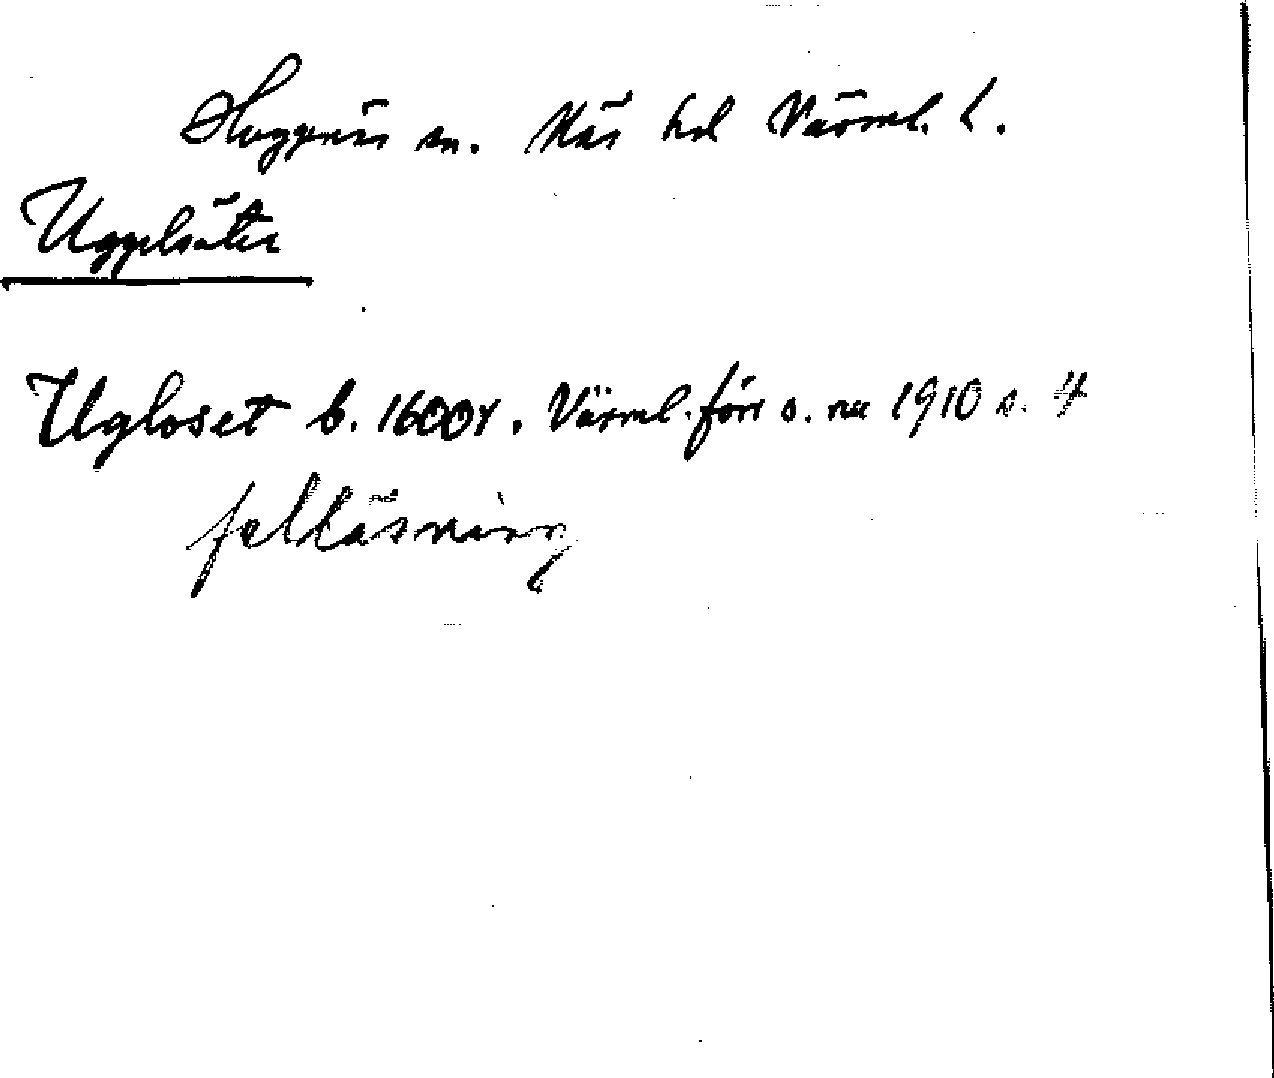 Huggenäs sn. Näs hd Värml. l.
Uggelsäter
Ugloset b. 1600t. Värml. förr o. nu 1910 s. 4
felläsning